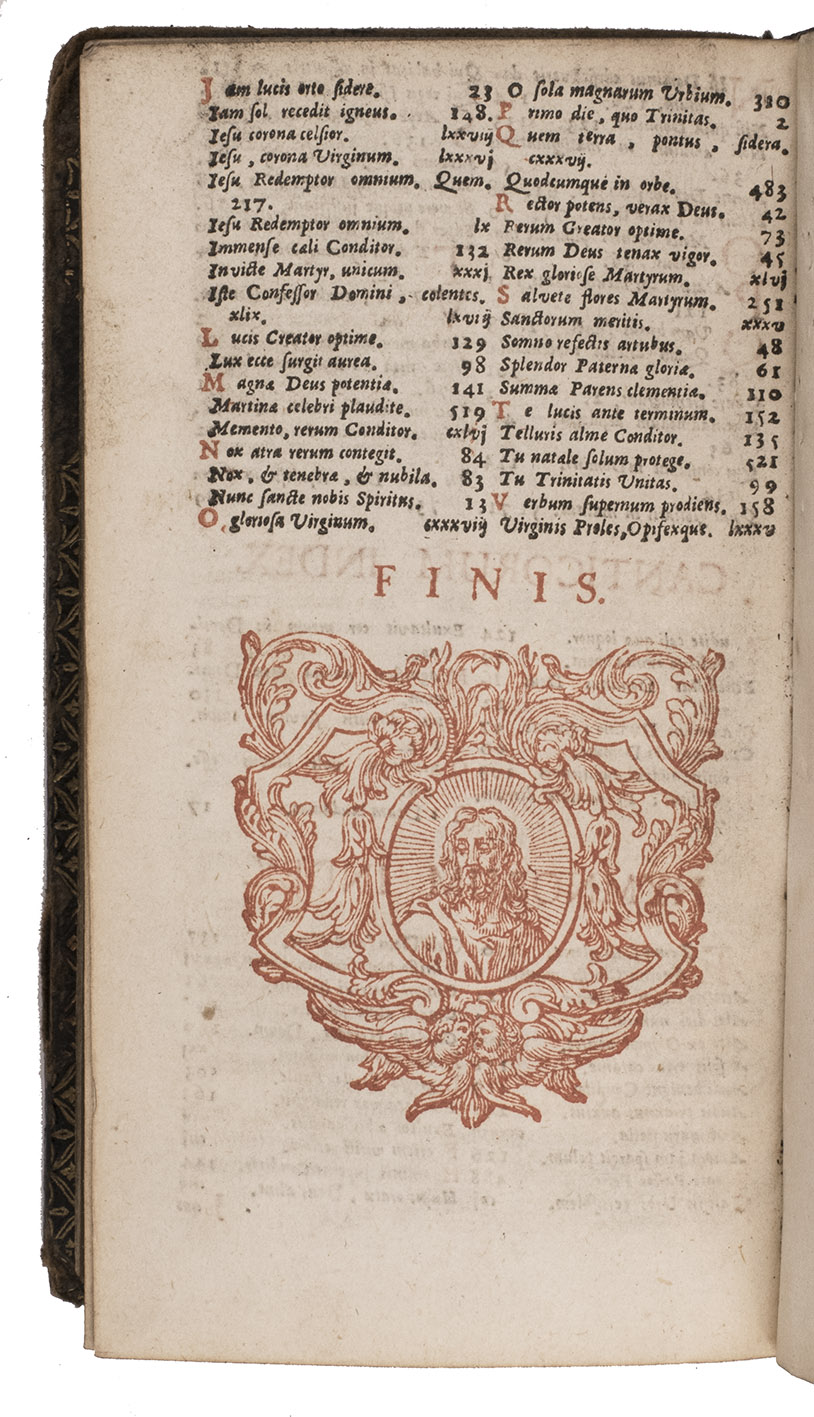 Jam lucis orto ſidere. 23
Jam ſol recedit igneus. 148.
Jeſu corona celſior. lxxviij
Jeſu, corona Virginum. lxxxvj
Jeſu Redemptor omnium. Quem.
217.
Jeſu Redemptor omnium. lx
Immenſe cæli Conditor. 132
Invicte Martyr, unicum. xxxj
Iſte Confeſſor Domini, colentes.
xlix. lxviij
Lucis Creator optime. 129
Lux ecce ſurgit aurea. 98
Magnæ Deus potentiæ. 141
Martinæ celebri plaudite. 519
Memento, rerum Conditor. cxlvj
Nox atra rerum contegit. 84
Nox, & tenebræ, & nubila. 83
Nunc ſancte nobis Spiritus. 13
O glorioſa Virginum. cxxxviij
O ſola magnarum Urbium. 310
Primo die, quo Trinitas. 2
Quem terra, pontus, ſidera.
cxxxvij.
Quodcumque in orbe. 483
Rector potens, verax Deus. 42
Rerum Creator optime. 73
Rerum Deus tenax vigor. 45
Rex glorioſe Martyrum. xlvj
Salvete flores Martyrum. 251
Sanctorum meritis. xxxv
Somno refectis artubus. 48
Splendor Paternæ gloriæ. 61
Summæ Parens clementiæ. 110
Te lucis ante terminum. 152
Telluris alme Conditor. 135
Tu natale ſolum protege. 521
Tu Trinitatis Unitas. 99
Verbum ſupernum prodiens. 158
Virginis Proles, Opifexque. lxxxv
FINIS.